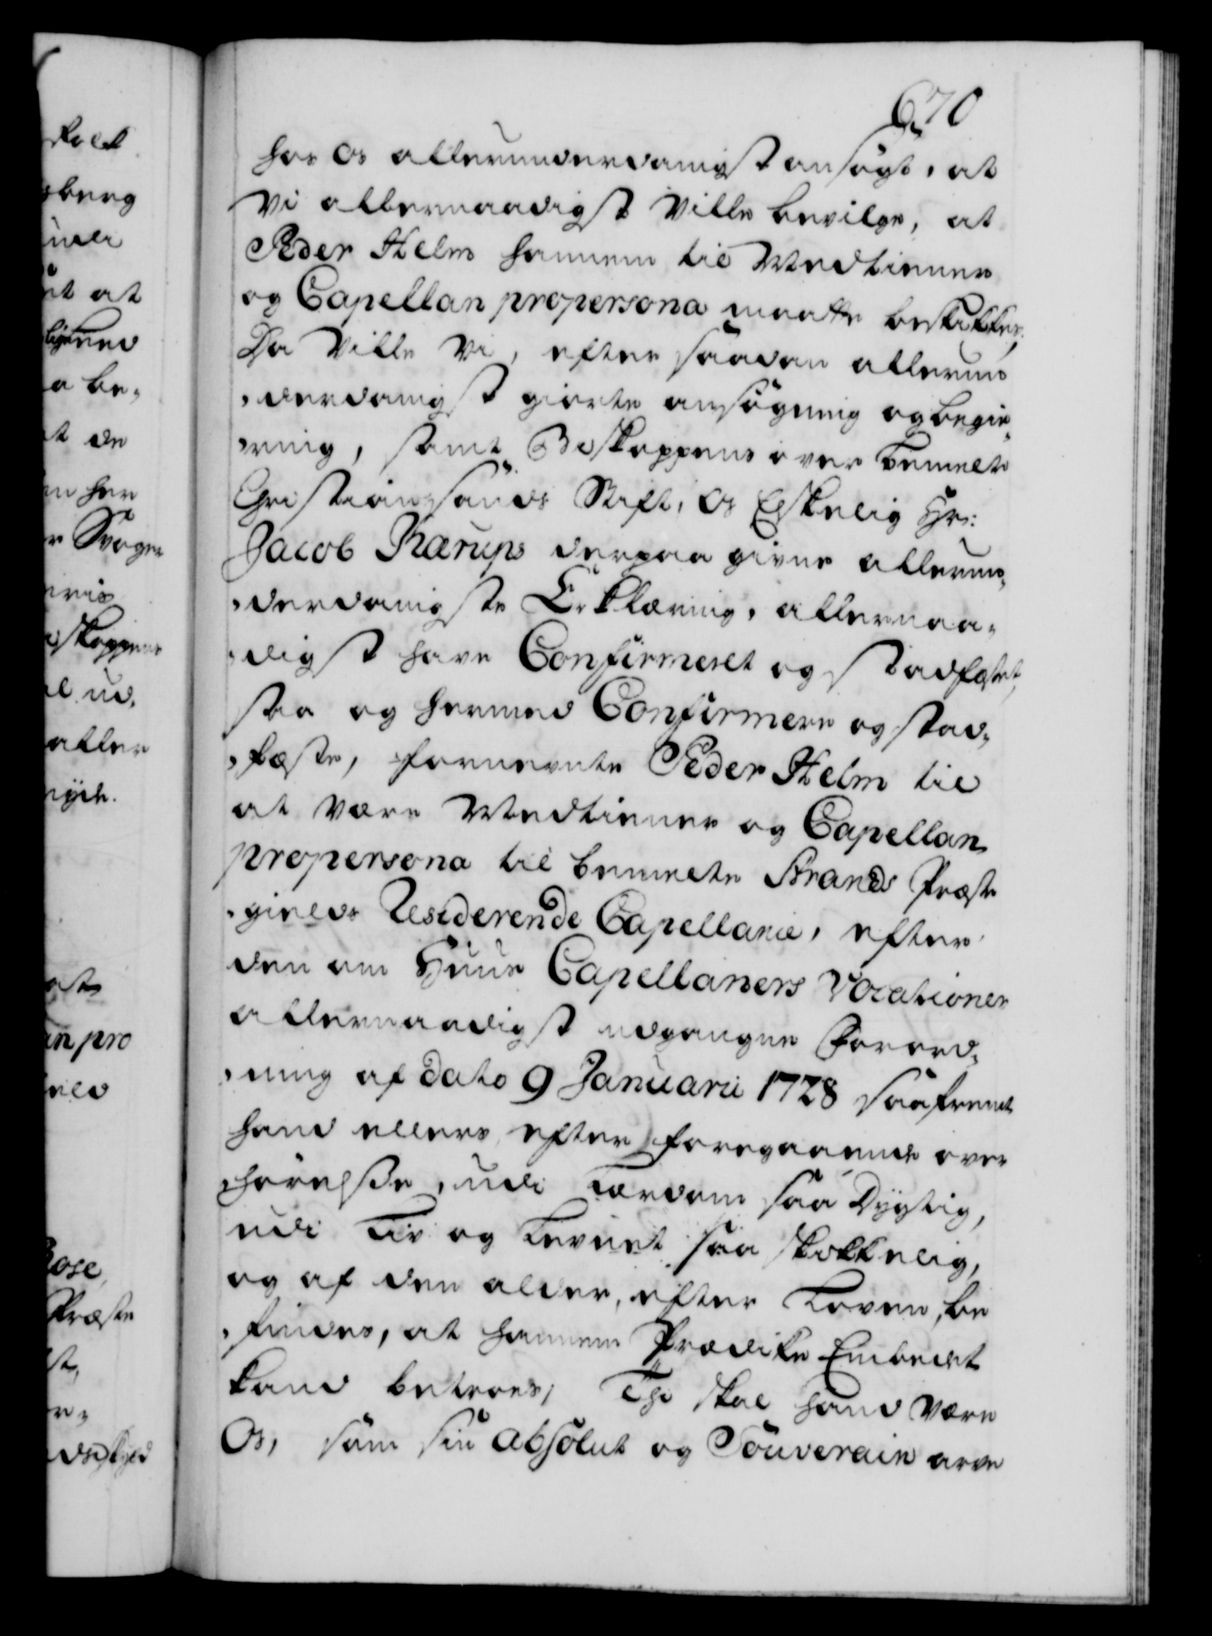 670
hos Os allerunderdanigst ansøgt, at
Vi allernaadigst Ville bevilge, at
Peder Helm hannem til Medtienner
og Capellan propersona maatte beskikkes,
Da Ville Vi, efter saadan allerun¬
derdanigst giorte ansøgning og begie¬
ring, samt Biskoppens over bemelte
Christiansands Stift, Os Elskelig Hr:
Jacob Kærups derpaa givne allerun¬
derdanigste Erklæring, allernaa¬
digst have Confirmeret og stadfæstet,
saa og hermed Confirmere og stad¬
fæste, fornevnte Peder Helm til
at være Medtienner og Capellan
propersona til bemelte Strands Præste
gields Residerende Capellanie, efter
den om Huus Capellaners Vocationer
allernaadigst udgangne Forord¬
ning af dato 9 Januarii 1728 saafremt
hand ellers efter foregaaende over
hørelsse, udi Lærdom saa Dygtig,
udi Liv og Levnet saa skikkelig,
og af den alder, efter Loven, be
findes, at hannem Prædike Embedet
kand betroes; Thi skal hand være
Os, som sin Absolut og Souverain arve